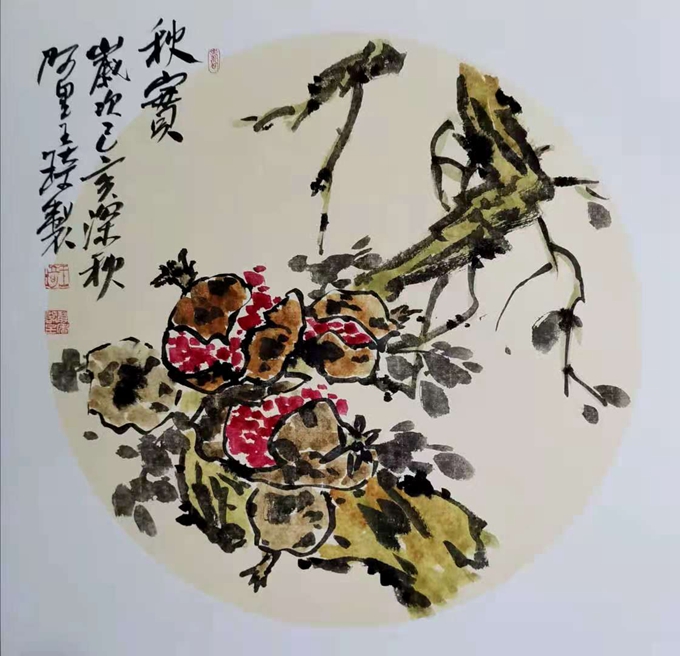 秋實
歲次己亥深秋
阿里王製